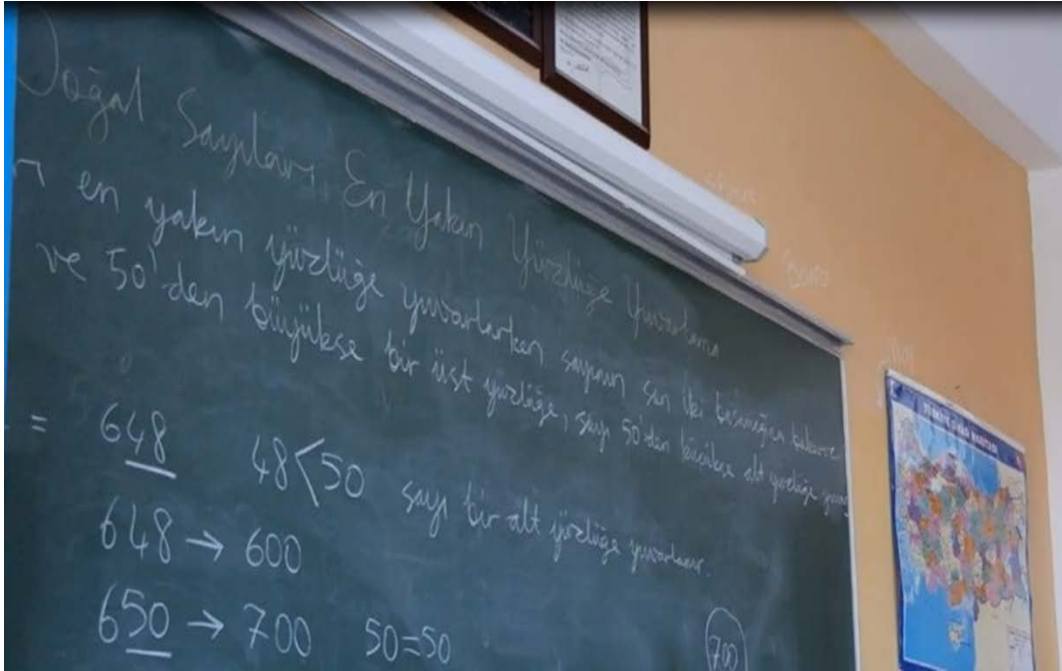 Doğal Sayıları En Yakın Yüzlüğe Yuvarlama
en yakın yüzlüğe yuvarlarken sayının son iki basamağına bakılır
ve 50'den büyükse bir üst yüzlüğe, sayı 50'den küçükse alt yüzlüğe
= 648 48<50 sayı bir alt yüzlüğe yuvarlanır.
648 → 600
650 → 700 50=50
700
TÜRKİYE HARİTASI